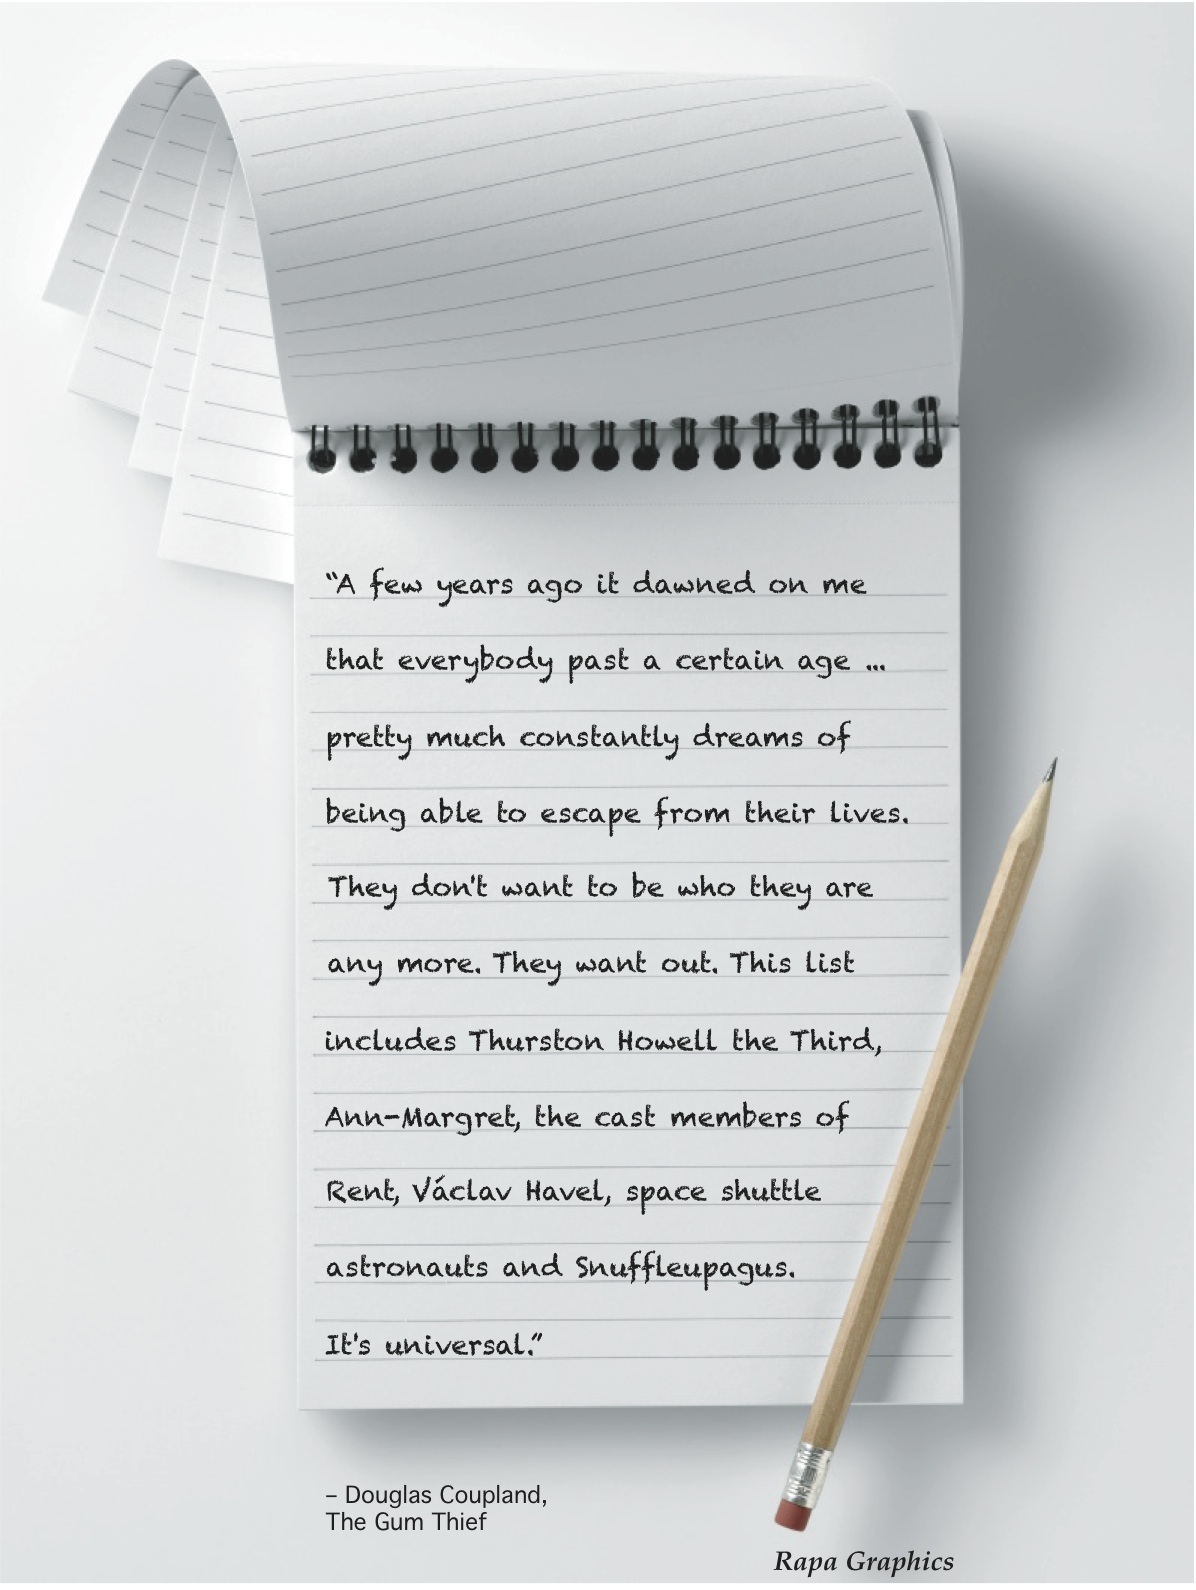 “A few years ago it dawned on me
that everybody past a certain age ...
pretty much constantly dreams of
being able to escape from their lives.
They don't want to be who they are
any more. They want out. This list
includes Thurston Howell the Third,
Ann-Margret, the cast members of
Rent, Václav Havel, space shuttle
astronauts and Snuffleupagus.
It's universal.”
– Douglas Coupland,
The Gum Thief
Rapa Graphics